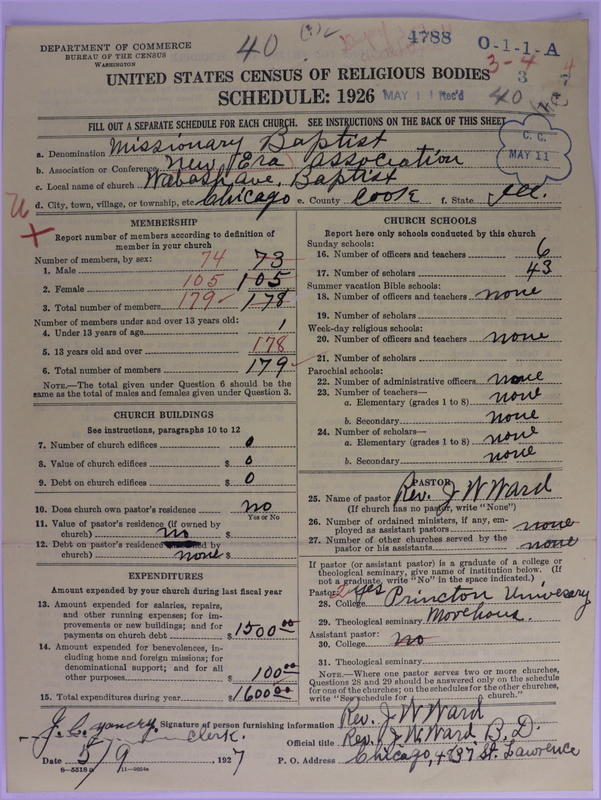 DEPARTMENT OF COMMERCE
BUREAU OF THE CENSUS
WASHINGTON
40
4788
O-1-1-A
3-4
3
UNITED STATES CENSUS OF RELIGIOUS BODIES
SCHEDULE: 1926
MAY 11 Rec'd
40
FILL OUT A SEPARATE SCHEDULE FOR EACH CHURCH. SEE INSTRUCTIONS ON THE BACK OF THIS SHEET
C. C.
MAY 11
a. Denomination Missionary Baptist
b. Association or Conference New Era association
c. Local name of church Wabash Ave. Baptist
d. City, town, village, or township, etc. Chicago e. County Cook f. State Ill.
MEMBERSHIP
Report number of members according to definition of
member in your church
Number of members, by sex:
1. Male 74 73
2. Female 105 105
3. Total number of members 179 178
Number of members under and over 13 years old:
4. Under 13 years of age 1
5. 13 years old and over 178
6. Total number of members 179
NOTE.—The total given under Question 6 should be the
same as the total of males and females given under Question 3.
CHURCH BUILDINGS
See instructions, paragraphs 10 to 12
7. Number of church edifices 0
8. Value of church edifices $ 0
9. Debt on church edifices $ 0
10. Does church own pastor's residence no
Yes or No
11. Value of pastor's residence (if owned by
church) no $
12. Debt on pastor's residence
church) none $
EXPENDITURES
Amount expended by your church during last fiscal year
13. Amount expended for salaries, repairs,
and other running expenses; for im-
provements or new buildings; and for
payments on church debt $ 1500 00
14. Amount expended for benevolences, in-
cluding home and foreign missions; for
denominational support; and for all
other purposes $ 100 00
15. Total expenditures during year $ 1600 00
CHURCH SCHOOLS
Report here only schools conducted by this church
Sunday schools:
16. Number of officers and teachers 6
17. Number of scholars 43
Summer vacation Bible schools:
18. Number of officers and teachers none
19. Number of scholars
Week-day religious schools:
20. Number of officers and teachers none
21. Number of scholars
Parochial schools:
22. Number of administrative officers none
23. Number of teachers—
a. Elementary (grades 1 to 8) none
b. Secondary none
24. Number of scholars—
a. Elementary (grades 1 to 8) none
b. Secondary none
PASTOR
25. Name of pastor Rev. J W Ward
(If church has no pastor, write "None")
26. Number of ordained ministers, if any, em-
ployed as assistant pastors none
27. Number of other churches served by the
pastor or his assistants none
If pastor (or assistant pastor) is a graduate of a college or
theological seminary, give name of institution below. (If
not a graduate, write "No" in the space indicated.)
Pastor: yes
28. College Princton Univesary
29. Theological seminary Morehous.
Assistant pastor:
30. College no
31. Theological seminary
NOTE.—Where one pastor serves two or more churches,
Questions 28 and 29 should be answered only on the schedule
for one of the churches; on the schedules for the other churches,
write "See schedule for church."
J. C. yancey. Signature of person furnishing information Rev. J W Ward
clerk. Official title Rev. J. W. Ward B. D.
Date 5/9, 1927 P. O. Address Chicago, 4837 St. Lawrence
8—5518a 11—9024a